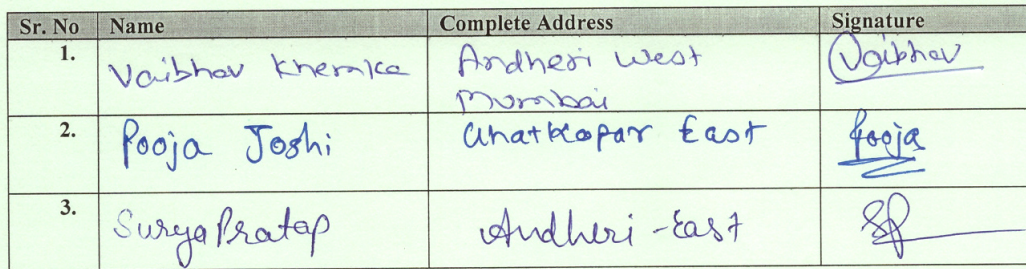 Sr. No Name Complete Address Signature
1. Vaibhav Khemka Andheri West Vaibhav
Mumbai
2. Pooja Joshi Ghatkopar East Pooja
3. Surya Pratap Andheri-East SP